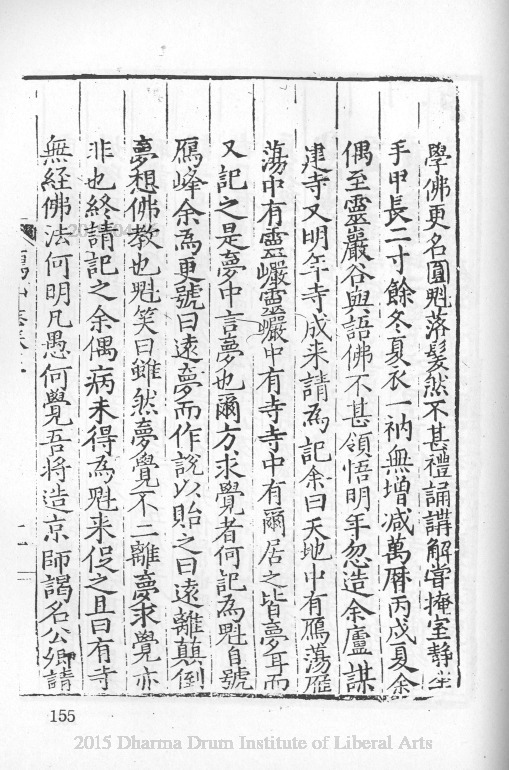 學佛更名圓魁落髮然不甚禮誦講解嘗掩室靜坐
手甲長二寸餘冬夏衣一衲無增减萬曆丙戍夏余
偶至靈巖谷與語佛不甚領悟明年忽造余廬謀
建寺又明年寺成来請為記余曰天地中有鴈蕩鴈
蕩中有靈巗靈巗中有寺寺中有爾居之皆夢耳而
又記之是夢中言夢也爾方求覺者何記為魁自號
鴈峰余為更號曰遠夢而作說以貽之曰遠離顛倒
夢想佛教也魁笑曰雖然夢覺不二離夢求覺亦
非也終請記之余偶病未得為魁来促之且曰有寺
無経佛法何明凡愚何覺吾將造京師謁名公卿請
155
2015 Dharma Drum Institute of Liberal Arts